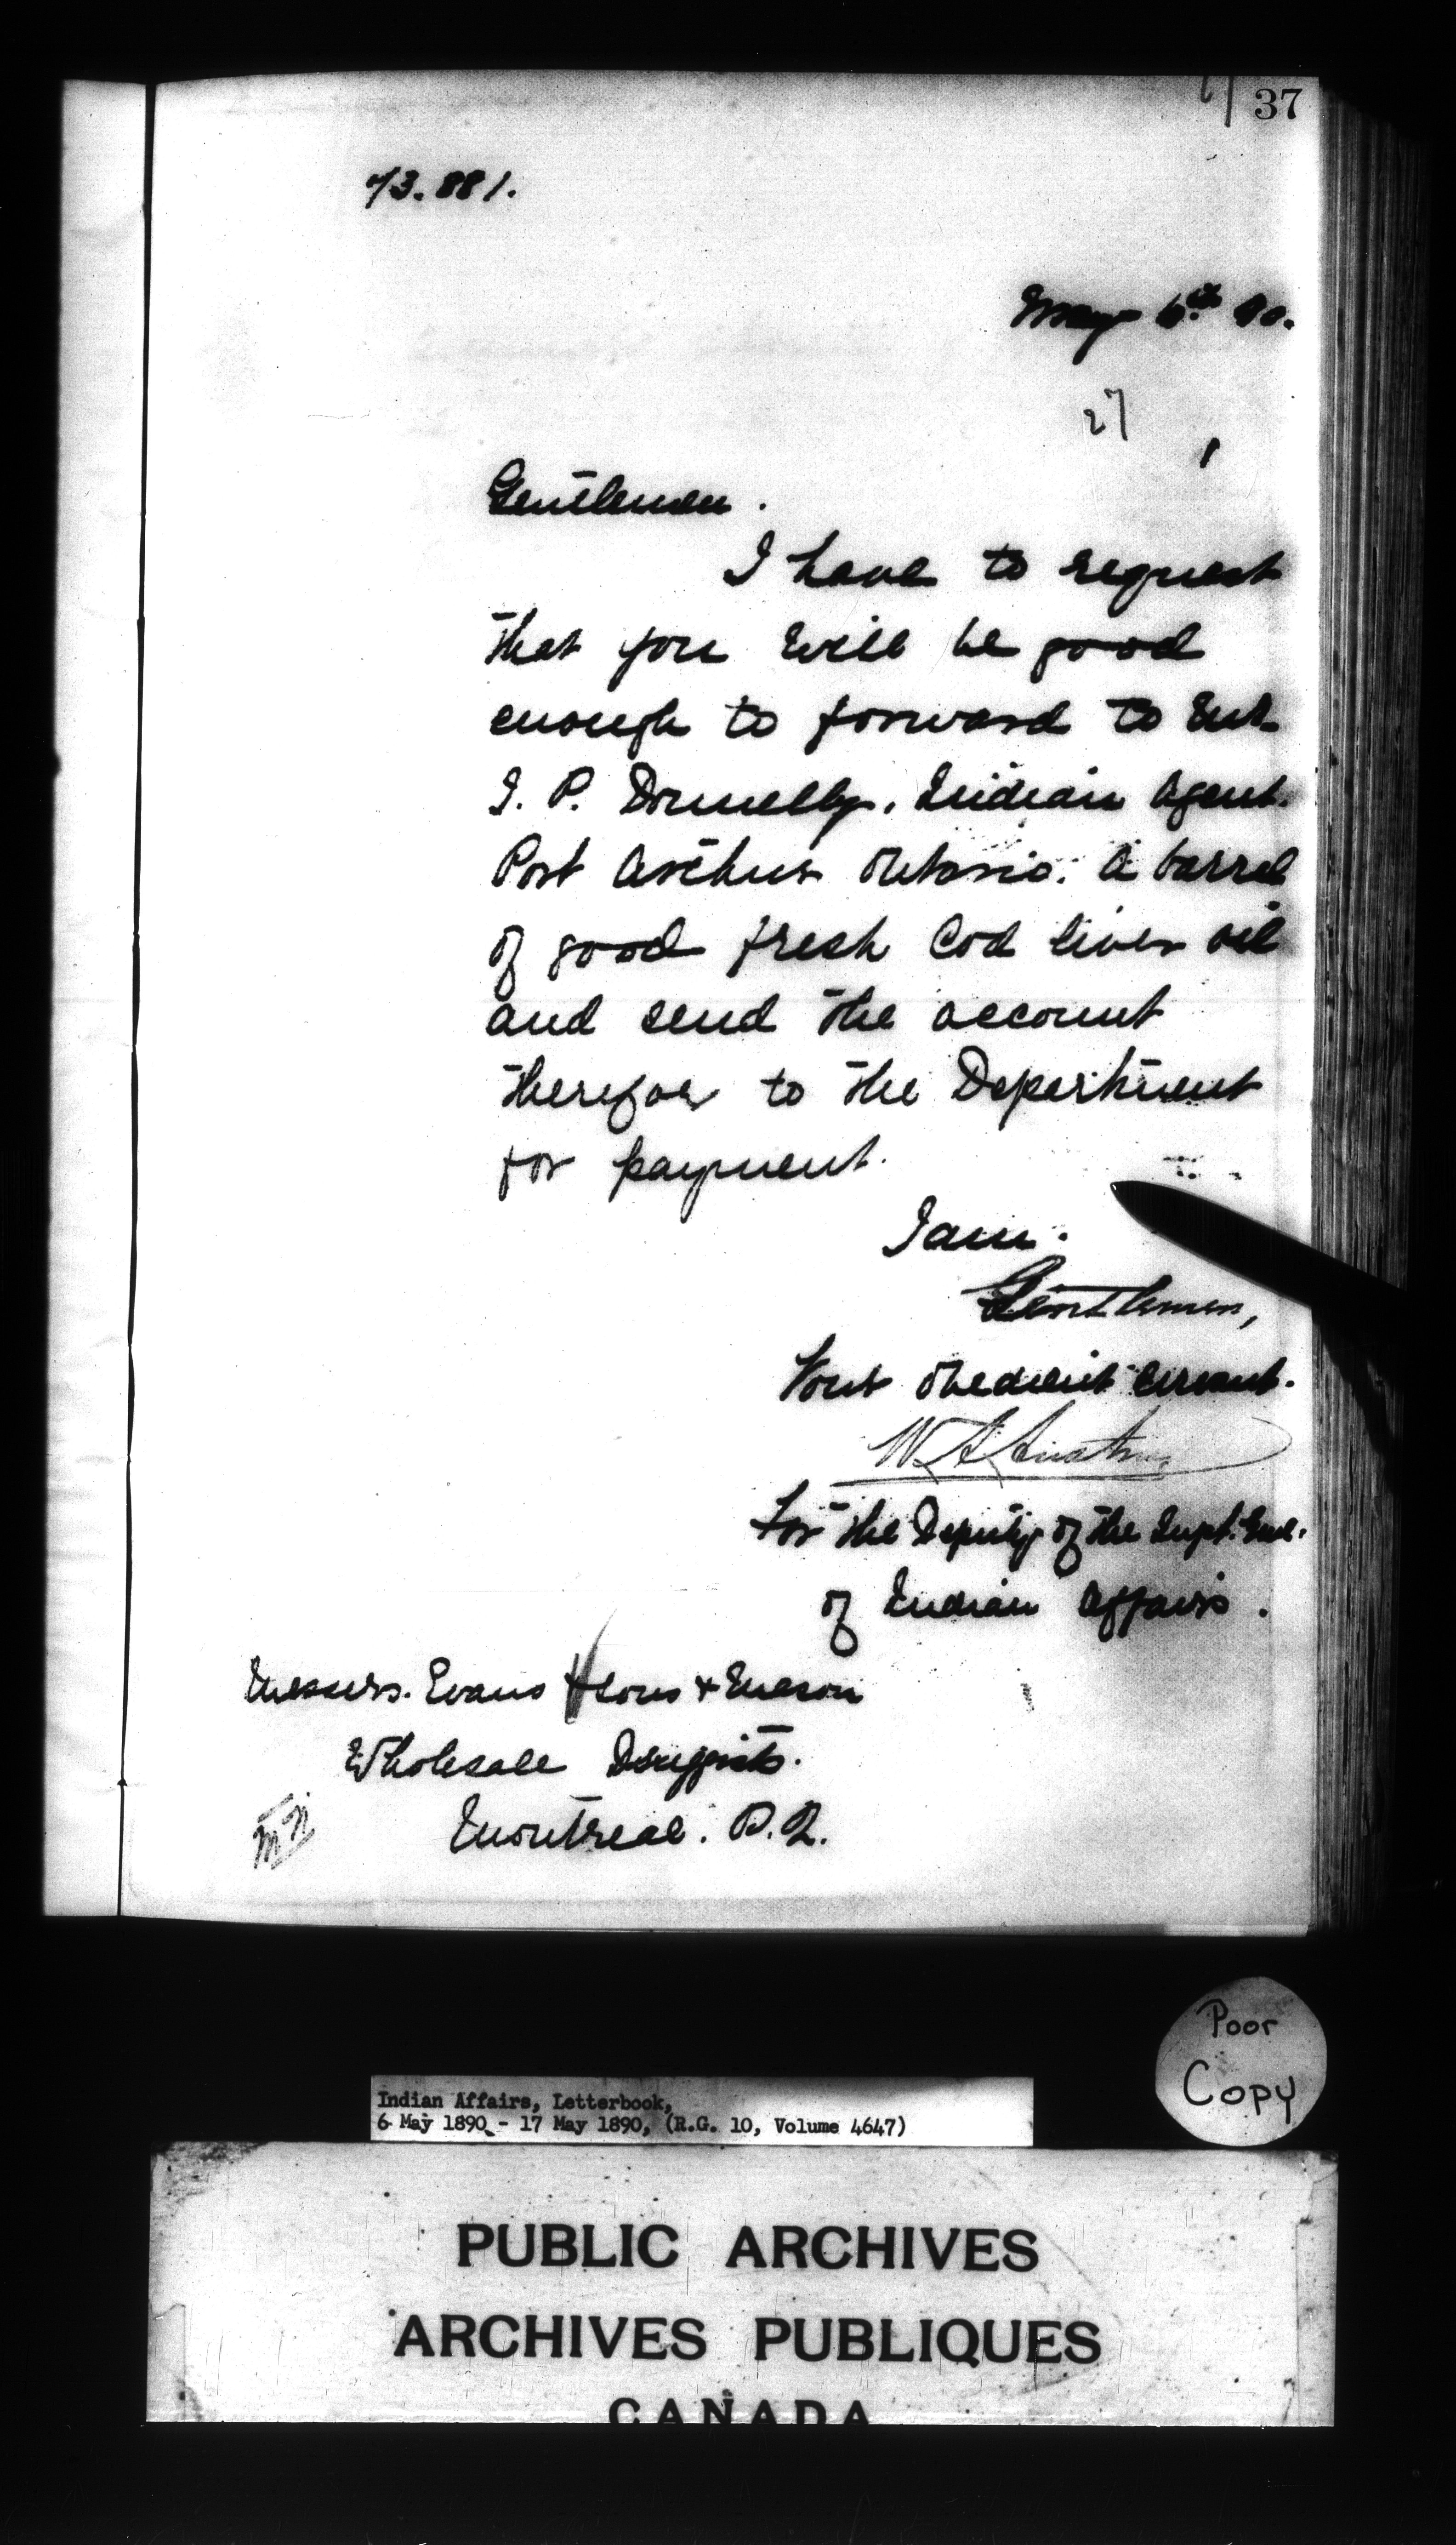 37
73.881.
May 6th 90.
27
Gentlemen.
I have to request
that you will be good
enough to forward to Mr.
J. P. Donnelly, Indian Agent.
Port Arthur Ontario. a barrel
of good fresh Cod liver oil
and send the account
therefor to the Department
for payment.
I am.
Gentlemen,
Your obedient servant.
For the Deputy of the Supt. Genl.
of Indian Affairs.
Messrs. Evans & Sons & Mason
Wholesale Druggists.
Montreal. P.Q.
Poor
Copy
Indian Affairs, Letterbook,
6 May 1890 - 17 May 1890, (R.G. 10, Volume 4647)
PUBLIC ARCHIVES
ARCHIVES PUBLIQUES
CANADA